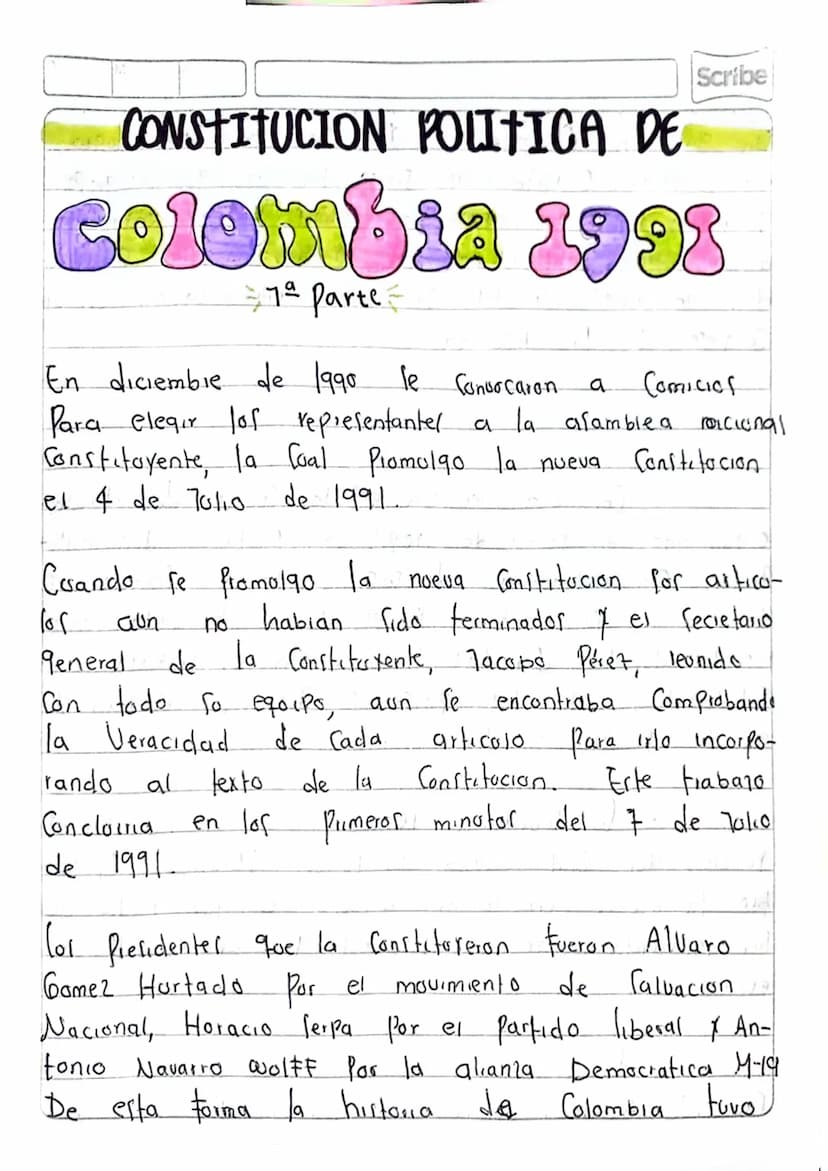 Scribe
CONSTITUCION POLITICA DE
Colombia 1991
1ª Parte
En diciembre de 1990 se convocaron a comicios
Para elegir los representantes a la asamblea nacional
Constituyente, la cual Promulgo la nueva Constitucion
el 4 de Julio de 1991.
Cuando se Promulgo la nueva Constitucion los articu-
los aun no habian sido terminados y el secretario
general de la Constituyente, Jacobo Pérez, reunido
con todo su equipo, aun se encontraba Comprobando
la Veracidad de cada articulo para irlo incorpo-
rando al texto de la Constitucion. Este trabajo
Concluiria en los Primeros minutos del 7 de Julio
de 1991.
los Presidentes que la Constituyeron fueron Alvaro
Gomez Hurtado Por el movimiento de Salvacion
Nacional, Horacio Serpa Por el Partido liberal y An-
tonio Navarro Wolff Por la alianza Democratica M-19
De esta forma la historia de Colombia tuvo